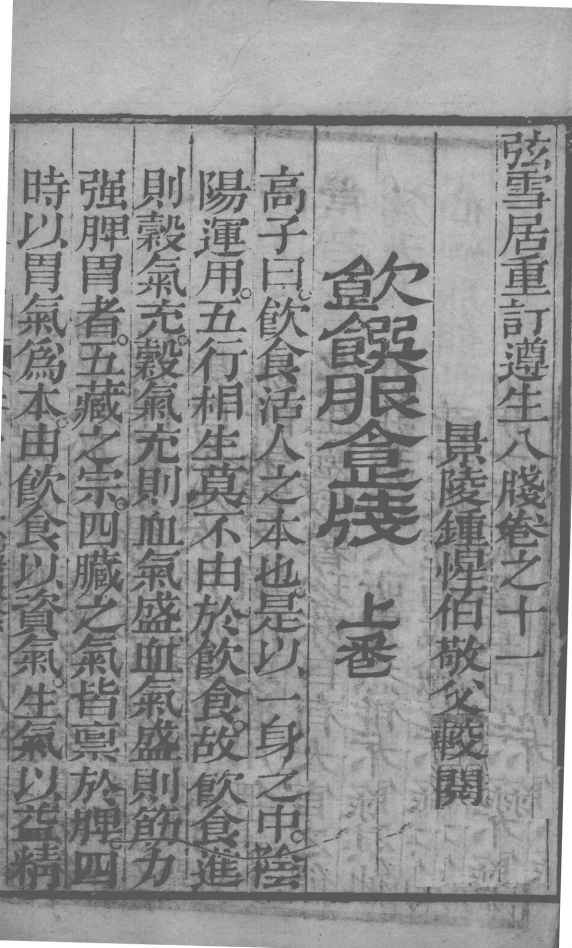 弦雪居重訂遵生八牋卷之十一
景陵鍾惺伯敬父較閱
飲饌服食牋 上卷
高子曰。飲食活人之本也。是以一身之中。陰
陽運用。五行相生莫不由於飲食。故飲食進
則穀氣充。穀氣充則血氣盛血氣盛則筋力
强脾胃者。五藏之宗。四臟之氣皆稟於脾。四
時以胃氣爲本。由飲食以資氣生氣以益精